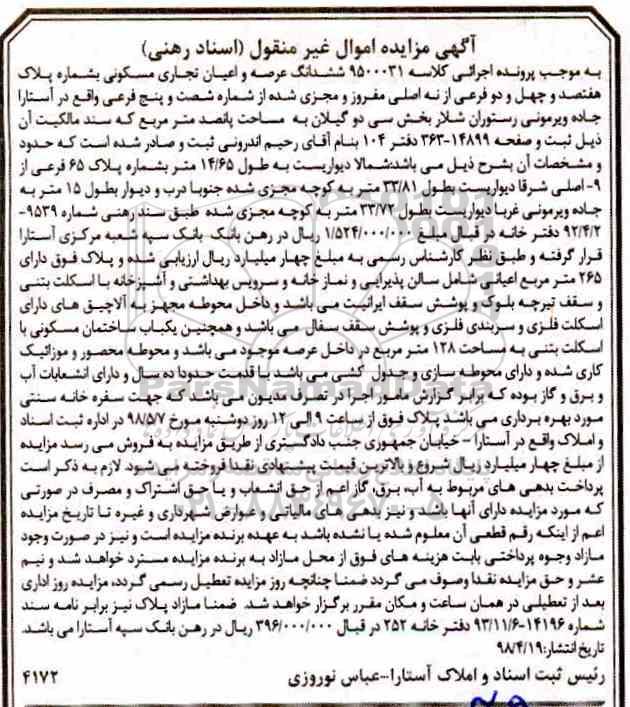 آگهی مزایده اموال غیر منقول (اسناد رهنی)
به موجب پرونده اجرائی کلاسه ۹۵۰۰۰۳۱ ششدانگ عرصه و اعیان تجاری مسکونی بشماره پلاک
هفتصد و چهل و دو فرعی از نه اصلی مفروز و مجزی شده از شماره شصت و پنج فرعی واقع در آستارا
جاده ویرمونی رستوران شلار بخش سی دو گیلان به مساحت پانصد متر مربع که سند مالکیت آن
ذیل ثبت و صفحه ۱۴۸۹۹-۳۶۳ دفتر ۱۰۴ بنام آقای رحیم اندرونی ثبت و صادر شده است که حدود
و مشخصات آن بشرح ذیل می باشد:شمالا دیواریست به طول ۱۴/۶۵ متر بشماره پلاک ۶۵ فرعی از
۹- اصلی شرقا دیواریست بطول ۳۳/۸۱ متر به کوچه مجزی شده جنوبا درب و دیوار بطول ۱۵ متر به
جاده ویرمونی غربا دیواریست بطول ۳۳/۷۲ متر به کوچه مجزی شده طبق سند رهنی شماره ۹۵۳۹-
۹۲/۴/۲ دفتر خانه در قبال مبلغ ۱/۵۲۴/۰۰۰/۰۰۰ ریال در رهن بانک بانک سپه شعبه مرکزی آستارا
قرار گرفته و طبق نظر کارشناس رسمی به مبلغ چهار میلیارد ریال ارزیابی شده و پلاک فوق دارای
۲۶۵ متر مربع اعیانی شامل سالن پذیرایی و نماز خانه و سرویس بهداشتی و آشپزخانه با اسکلت بتنی
و سقف تیرچه بلوک و پوشش سقف ایرانیت می باشد و داخل محوطه مجهز به آلاچیق های دارای
اسکلت فلزی و سربندی فلزی و پوشش سقف سفال می باشد و همچنین یکباب ساختمان مسکونی با
اسکلت بتنی به مساحت ۱۲۸ متر مربع در داخل عرصه موجود می باشد و محوطه محصور و موزائیک
کاری شده و دارای محوطه سازی و جدول کشی می باشد با قدمت حدودا ده سال و دارای انشعابات آب
و برق و گاز بوده که برابر گزارش مامور اجرا در تصرف مدیون می باشد که جهت سفره خانه سنتی
مورد بهره برداری می باشد پلاک فوق از ساعت ۹ الی ۱۲ روز دوشنبه مورخ ۹۸/۵/۷ در اداره ثبت اسناد
و املاک واقع در آستارا - خیابان جمهوری جنب دادگستری از طریق مزایده به فروش می رسد مزایده
از مبلغ چهار میلیارد ریال شروع و بالاترین قیمت پیشنهادی نقدا فروخته می شود. لازم به ذکر است
پرداخت بدهی های مربوط به آب، برق، گاز اعم از حق انشعاب و یا حق اشتراک و مصرف در صورتی
که مورد مزایده دارای آنها باشد و نیز بدهی های مالیاتی و عوارض شهرداری و غیره تا تاریخ مزایده
اعم از اینکه رقم قطعی آن معلوم شده یا نشده باشد به عهده برنده مزایده است و نیز در صورت وجود
مازاد وجوه پرداختی بابت هزینه های فوق از محل مازاد به برنده مزایده مسترد خواهد شد و نیم
عشر و حق مزایده نقدا وصول می گردد ضمنا چنانچه روز مزایده تعطیل رسمی گردد، مزایده روز اداری
بعد از تعطیلی در همان ساعت و مکان مقرر برگزار خواهد شد. ضمنا مازاد پلاک نیز برابر نامه سند
شماره ۱۴۱۹۶-۹۳/۱۱/۶ دفتر خانه ۲۵۲ در قبال ۳۹۶/۰۰۰/۰۰۰ ریال در رهن بانک سپه آستارا می باشد.
تاریخ انتشار:۹۸/۴/۱۹
رئیس ثبت اسناد و املاک آستارا-عباس نوروزی ۴۱۷۲
ParsNamadData